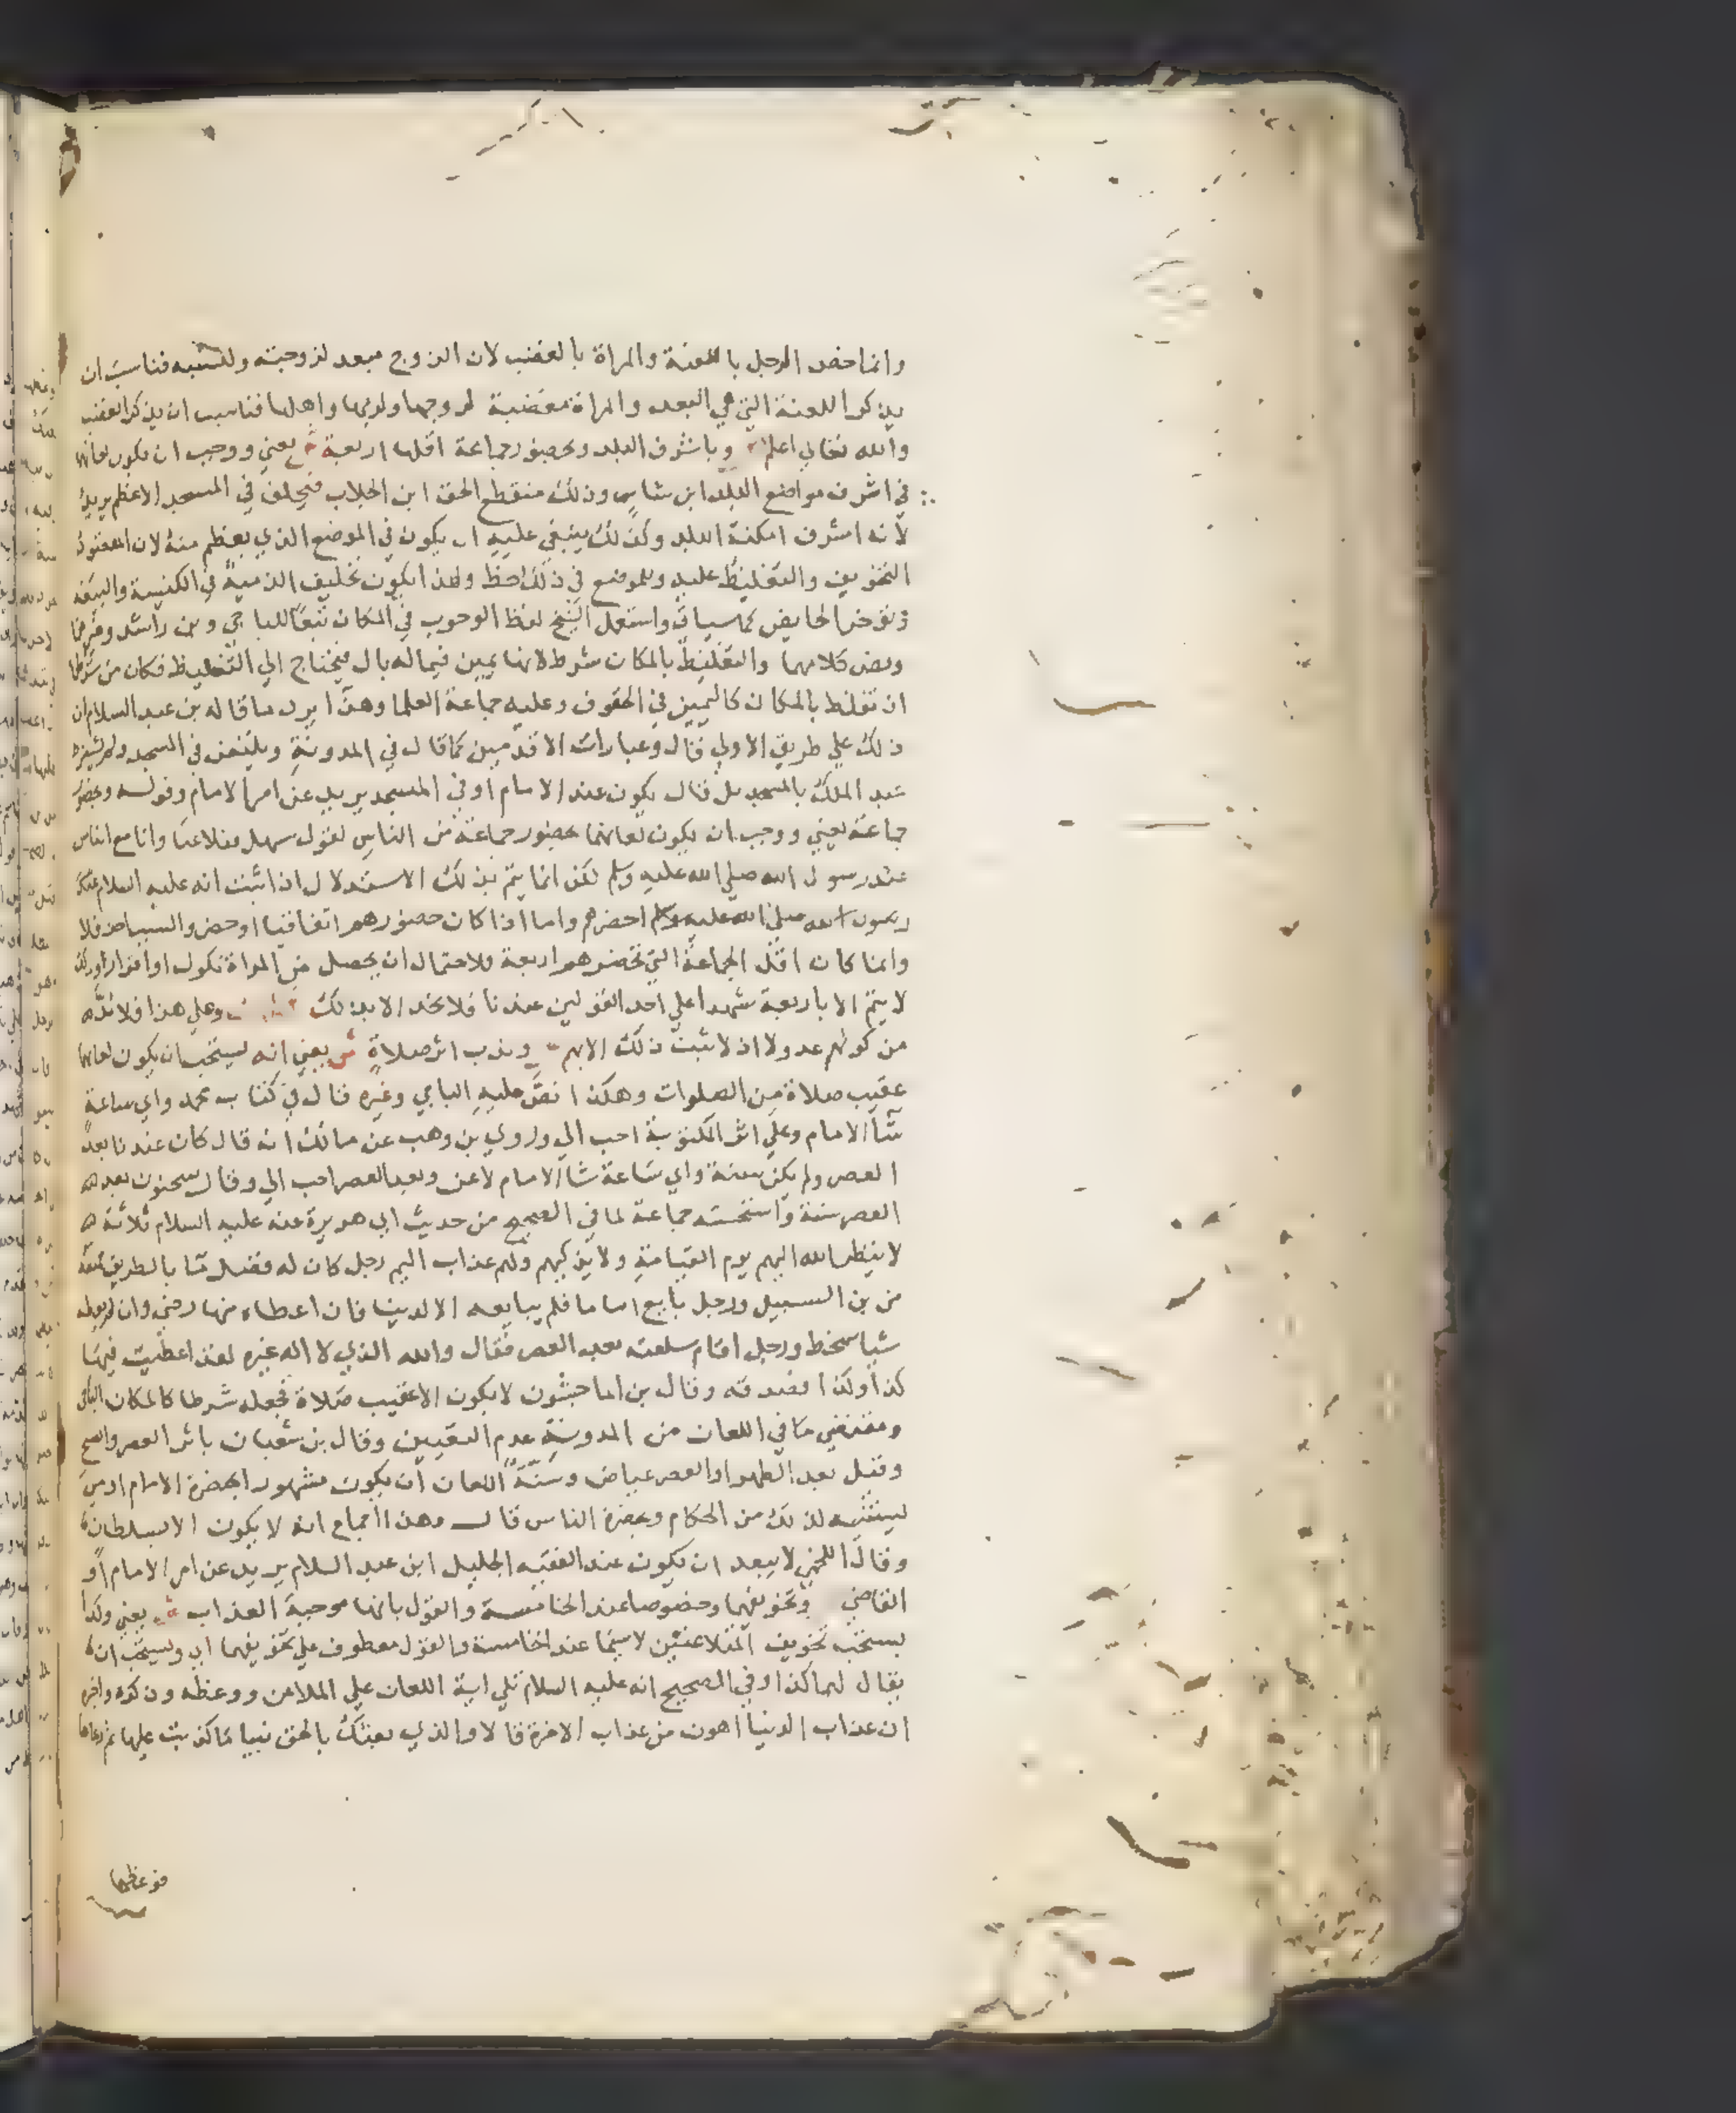 وانما خص الرجل باللعنة والمراة بالغضب لان الزوج مبعد لزوجته ولنسبه فناسب ان
يذكر اللعنة التي هي البعد والمراة مغضبة لزوجها ولربها واهلها فناسب ان يذكر الغضب
والله تعالي اعلم وباشرف البلد وبحضور جماعة اقلها اربعة ش يعني ووجب ان يكون لعانهما
في اشرف مواضع البلد ابن شاس وذلك منقطع الحق ابن الجلاب فيحلف في المسجد الاعظم يريد
لانه اشرف امكنة البلد وكذلك ينبغي عليه ان يكون في الموضع الذي يعظم منه لان المقصود
التخويف والتغليظ عليه وللموضع في ذلك حظ ولهذا يكون تحليف الذمية في الكنيسة والبيعة
وتوخر الحايض كما سياتي واستعمل الشيخ لفظ الوجوب في المكان تبعا للباجي وبن راشد وغيرهما
ونص كلامهما والتغليظ بالمكان شرط لانها يمين فيما له بال فيحتاج الي التغليظ فكان من شرطها
ان تغلظ بالمكان كاليمين في الحقوق وعليه جماعة العلما وهذا يرد ما قاله بن عبد السلام ان
ذلك علي طريق الاولي قال وعبارات الاقدمين كما قال في المدونة ويلتعن في المسجد ولم يشترط
عبد الملك بالمسجد بل قال يكون عند الامام او في المسجد يريد عن امر الامام وقوله وبحضور
جماعة يعني ووجب ان يكون لعانهما بحضور جماعة من الناس لقول سهل فتلاعنا وانا مع الناس
عند رسول الله صلي الله عليه وسلم لكن انما يتم بذلك الاستدلال اذا ثبت انه عليه السلام
رسول الله صلي الله عليه وسلم احضرهم واما اذا كان حضورهم اتفاقيا او حضروا لسبب اخر فلا
وانما كان اقل الجماعة التي تحضر هم اربعة فلاحتمال ان يحصل من المراة نكول او اقرار وذلك
لا يتم الا باربعة شهدا علي احد القولين عندنا فلا تحد الا بذلك وعلي هذا فلا بد
من كونهم عدولا اذ لا يثبت ذلك الا بهم وندب اثر صلاة ش يعني انه يستحب ان يكون لعانهما
عقيب صلاة من الصلوات وهكذا نص عليه الباجي وغيره قال في كتاب محمد واي ساعة
شا الامام وعلي اثر المكتوبة احب الي وروي بن وهب عن مالك انه قال كان عندنا بعد
العصر ولم يكن سنة واي ساعة شا الامام لاعن وبعد العصر احب الي وقال سحنون بعد
العصر سنة واستحسنه جماعة لما في الصحيح من حديث ابي هريرة عنه عليه السلام ثلاثة
لا ينظر الله اليهم يوم القيامة ولا يزكيهم ولهم عذاب اليم رجل كان له فضل ما بالطريق فمنعه
من بن السبيل ورجل بايع اماما فلم يبايعه الا لدنيا فان اعطاه منها رضي وان لم يعطه
شيا سخط ورجل اقام سلعته بعد العصر فقال والله الذي لا اله غيره لقد اعطيت فيها
كذا وكذا فصدقه وقال بن الماجشون لا يكون الا عقيب صلاة فجعله شرطا كالمكان الباجي
ومقتضي ما في اللعان من المدونة عدم التعيين وقال بن شعبان باثر العصر والصبح
وقيل بعد الظهر او العصر عياض وسنة اللعان ان يكون مشهورا بحضرة الامام او من
يستنيبه لذلك من الحكام وبحضرة الناس قال وهذا اجماع انه لا يكون الا بسلطان
وقال اللخمي لا يبعد ان يكون عند الفقيه الجليل ابن عبد السلام يريد عن امر الامام او
القاضي وتخويفهما وخصوصا عند الخامسة والقول بانها موجبة العذاب ش يعني وكذا
يستحب تخويف المتلاعنين لا سيما عند الخامسة والقول معطوف علي تخويفهما اي ويستحب ان
يقال لهما كذا وفي الصحيح انه عليه السلام تلي اية اللعان علي الملاعن ووعظه وذكره واخبره
ان عذاب الدنيا اهون من عذاب الاخرة قال لا والذي بعثك بالحق نبيا ما كذبت عليها ثم دعاها
فوعظها